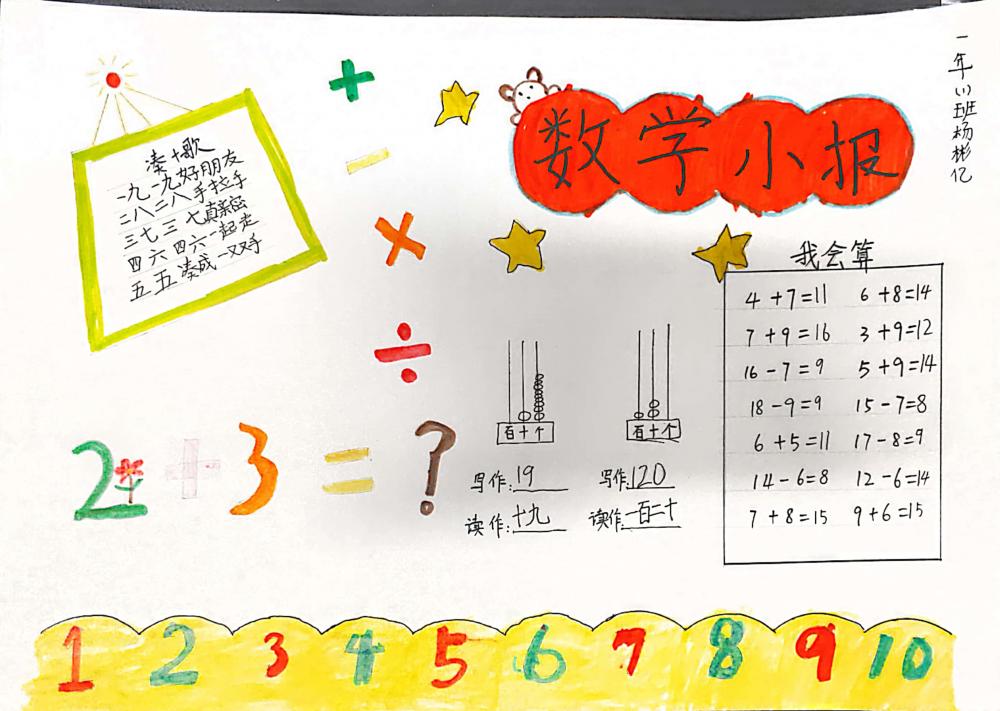 一年(1)班杨彬亿
数学小报
凑十歌
一九一九好朋友
二八二八手拉手
三七三七真亲密
四六四六一起走
五五凑成一双手
+
-
×
÷
2+3=?
我会算
4+7=11 6+8=14
7+9=16 3+9=12
16-7=9 5+9=14
18-9=9 15-7=8
6+5=11 17-8=9
14-6=8 12-6=14
7+8=15 9+6=15
百十个 百十个
写作:19 写作:120
读作:十九 读作:一百二十
1 2 3 4 5 6 7 8 9 10